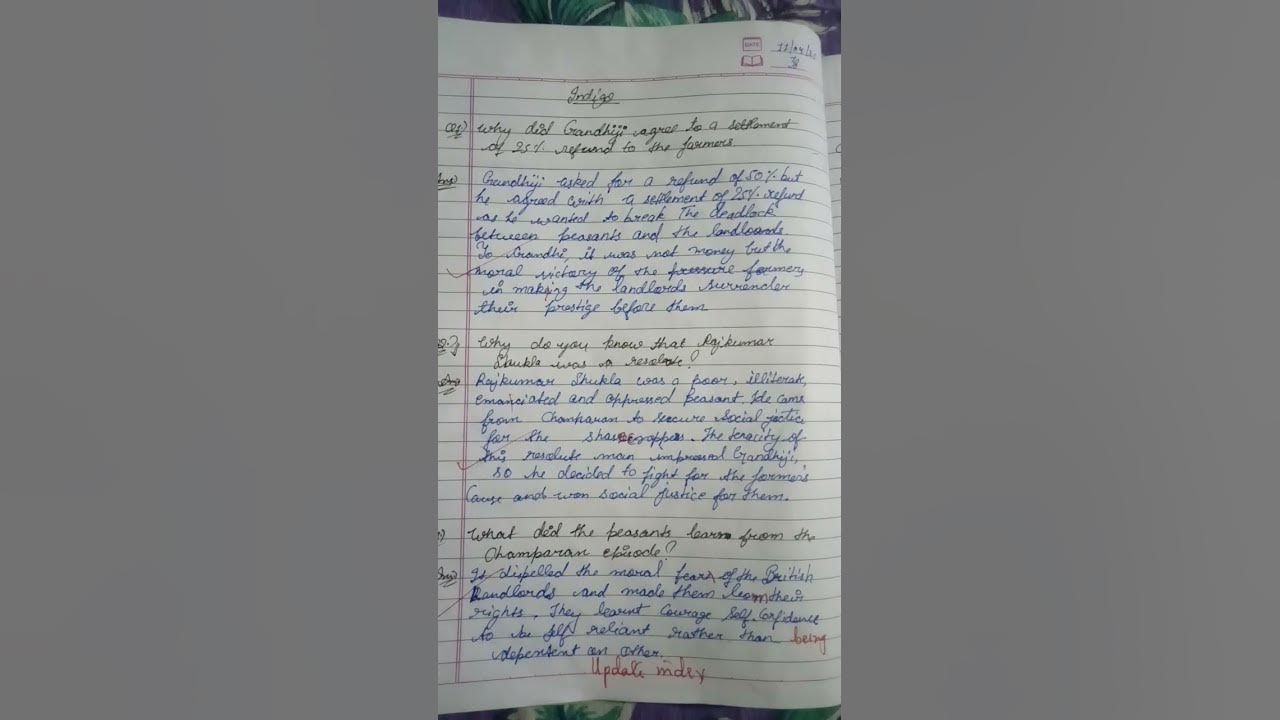 DATE 11/04/
38
Indigo
Q1) Why did Gandhiji agree to a settlement
of 25% refund to the farmers.
Ans) Gandhiji asked for a refund of 50% but
he agreed with a settlement of 25% refund
as he wanted to break The deadlock
between peasants and the landloards.
To Gandhi, it was not money but the
moral victory of the farmers
in making the landlords surrender
their prestige before them
Why do you know that Rajkumar
Shukla was a resolute?
Ans Rajkumar Shukla was a poor, illiterate,
emanciated and oppressed peasant. He came
from Champaran to secure social jostice
for the sharecroppers. The tenacity of
this resolute man impressed Gandhiji,
so he decided to fight for the farmer's
Cause and won social justice for them.
What did the peasants learn from the
Champaran episode?
Ans) It dispelled the moral fears of the British
Landlords and made them learn their
rights. They learnt Courage Self. Confidence
to be self reliant rather than being
depentent on other.
Update index